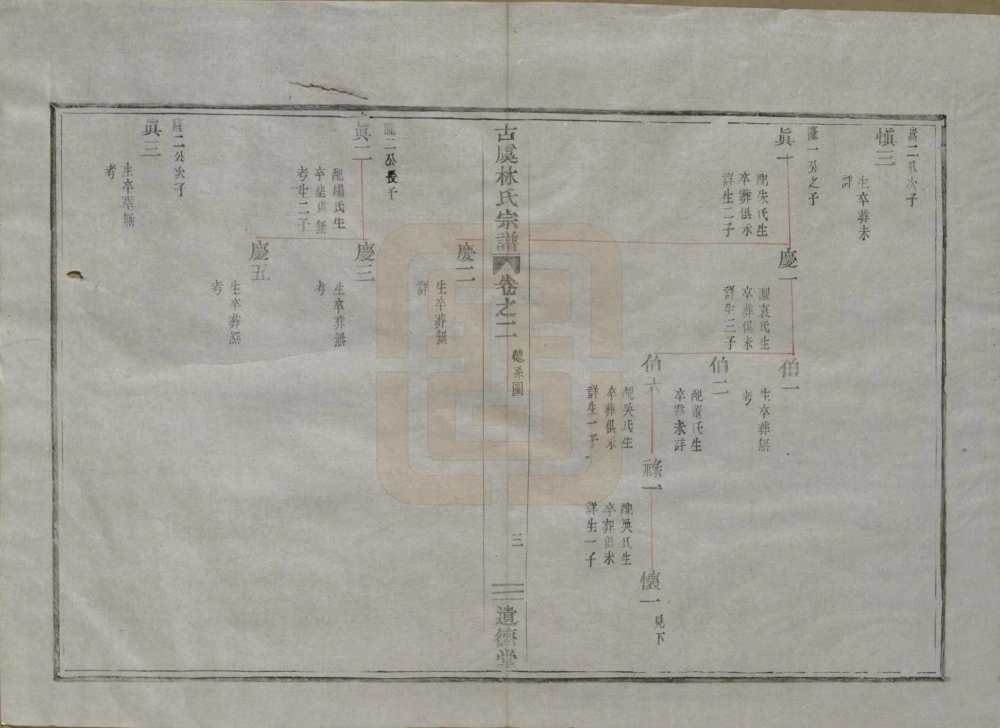 二公次子
慎三
生卒葬未
詳
隆一公之子
眞十
配朱氏生
卒葬俱未
詳生二子
慶一
配袁氏生
卒葬俱未
詳生三子
伯一
生卒葬無
考
伯二
配董氏生
卒葬未詳
伯六
配吳氏生
卒葬俱未
詳生一子
祿一
配吳氏生
卒葬俱未
詳生一子
懷一
見下
慶二
生卒葬無
詳
古虞林氏宗譜
卷之二
總系圖
三
遺德堂
隆二公長子
眞二
氏生
卒葬俱無
考生二子
慶三
生卒葬無
考
慶五
生卒葬無
考
隆二公次子
眞三
生卒葬無
考